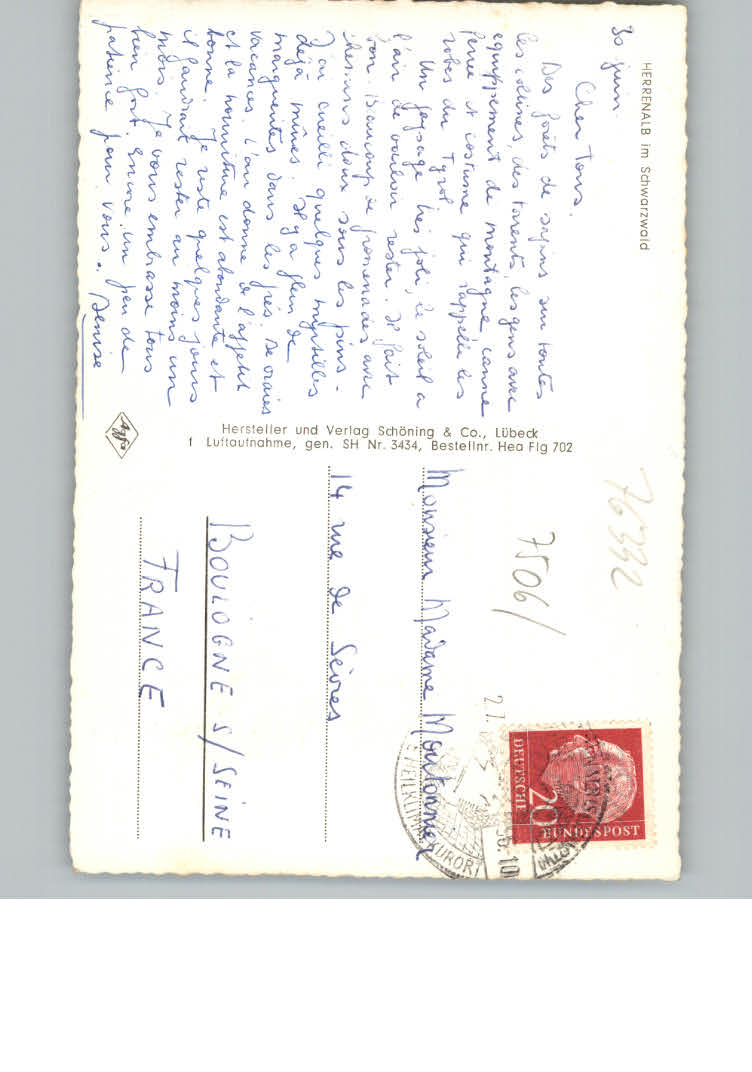 HERRENALB im Schwarzwald
30 juin.
Cher Tous.
Des forêts de sapins sur toutes
les collines, des torrents, les gens avec
équippement de montagne, canne
ferrée et costume qui rappelle les
robes du Tyrol.
Un paysage très joli, le soleil a
l'air de vouloir rester. Il fait
bon. Beaucoup de promenades avec
chemins doux sous les pins.
J'ai cueilli quelques myrtilles
déjà mûres. Il y a plein de
marguerites dans les prés de vraies
vacances. L'air donne de l'appétit
et la nourriture est abondante et
bonne. Je reste quelques jours
il faudrait rester au moins un
mois. Je vous embrasse tous
bien fort, encore un peu de
patience pour vous. Denise
Agfa
Hersteller und Verlag Schöning & Co., Lübeck
f Luftaufnahme, gen. SH Nr. 3434, Bestellnr. Hea Flg 702
76332
7506/
Monsieur Madame Moutonnier
14 rue de Sèvres
BOULOGNE S/SEINE
FRANCE
DEUTSCHE
20
BUNDESPOST
HEILKLIMA KURORT